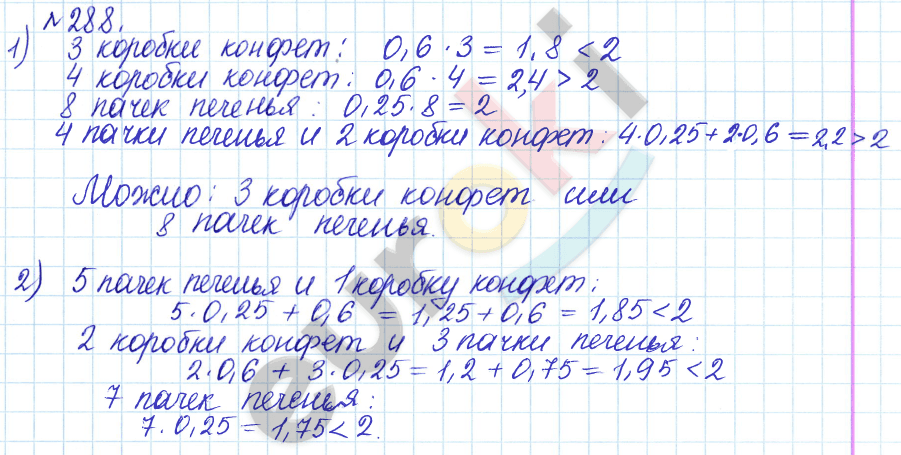 №288.
1) 3 коробки конфет: 0,6·3=1,8<2
4 коробки конфет: 0,6·4=2,4>2
8 пачек печенья: 0,25·8=2
4 пачки печенья и 2 коробки конфет: 4·0,25+2·0,6=2,2>2
Можно: 3 коробки конфет или
8 пачек печенья.
2) 5 пачек печенья и 1 коробку конфет:
5·0,25+0,6=1,25+0,6=1,85<2
2 коробки конфет и 3 пачки печенья:
2·0,6+3·0,25=1,2+0,75=1,95<2
7 пачек печенья:
7·0,25=1,75<2.
euroki